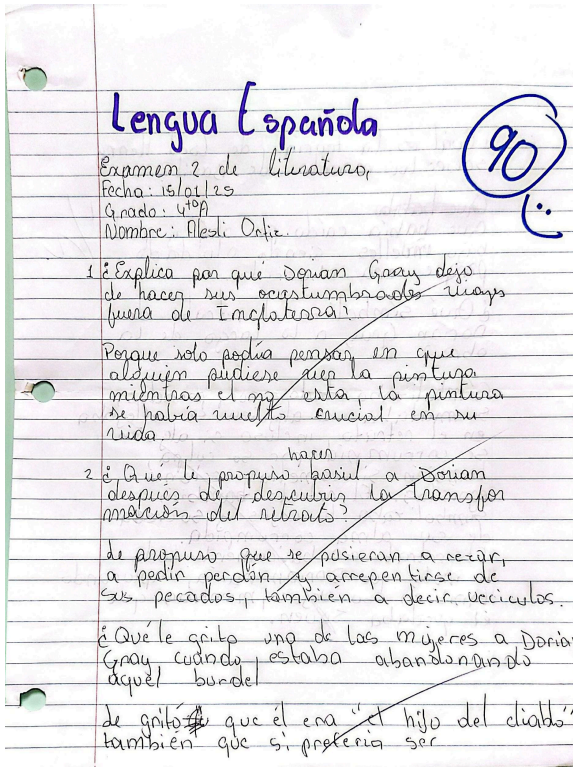 Lengua Española
90
Examen 2 de literatura,
Fecha: 15/01/25
Grado: 4toA
Nombre: Alesli Ortiz.
1 ¿Explica por qué Dorian Gray dejo
de hacer sus acostumbrados viajes
fuera de Inglaterra?
Porque solo podía pensar en que
alguien pudiese ver la pintura
mientras el no esta, la pintura
se había vuelto crucial en su
vida.
hacer
2 ¿Qué le propuso basil a Dorian
después de descubrir la transfor
mación del retrato?
Le propuso que se pusieran a rezar,
a pedir perdón y arrepentirse de
sus pecados, también a decir veciculos.
¿Qué le grito una de las mujeres a Doria
Gray cuando estaba abandonando
aquel burdel
Le gritó que él era "el hijo del diablo"
también que si prefería ser